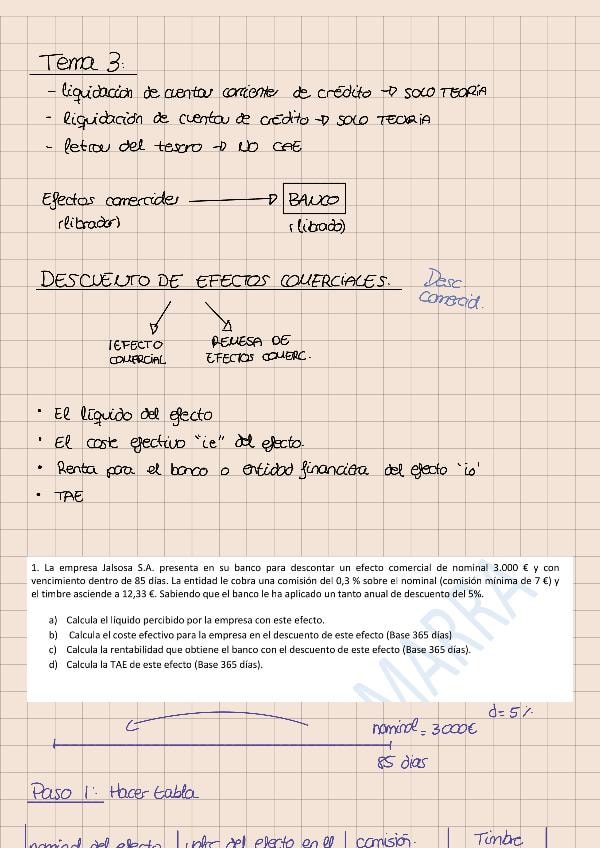 Tema 3:
- liquidación de cuentas corriente de crédito → SOLO TEORÍA
- liquidación de cuenta de crédito → SOLO TEORÍA
- letras del tesoro → NO CAE
Efectos comerciales → BANCO
(librador) (librado)
DESCUENTO DE EFECTOS COMERCIALES.
Desc
comercial.
1 EFECTO
COMERCIAL
REMESA DE
EFECTOS COMERC.
• El líquido del efecto
• El coste efectivo "ie" del efecto.
• Renta para el banco o entidad financiera del efecto "io"
• TAE
1. La empresa Jalsosa S.A. presenta en su banco para descontar un efecto comercial de nominal 3.000 € y con
vencimiento dentro de 85 días. La entidad le cobra una comisión del 0,3 % sobre el nominal (comisión mínima de 7 €) y
el timbre asciende a 12,33 €. Sabiendo que el banco le ha aplicado un tanto anual de descuento del 5%.
a) Calcula el líquido percibido por la empresa con este efecto.
b) Calcula el coste efectivo para la empresa en el descuento de este efecto (Base 365 días)
c) Calcula la rentabilidad que obtiene el banco con el descuento de este efecto (Base 365 días).
d) Calcula la TAE de este efecto (Base 365 días).
MARRA
d = 5%
nominal = 3000€
85 días
Paso 1: Hacer tabla
nominal del efecto | del efecto en el | comisión. | Timbre